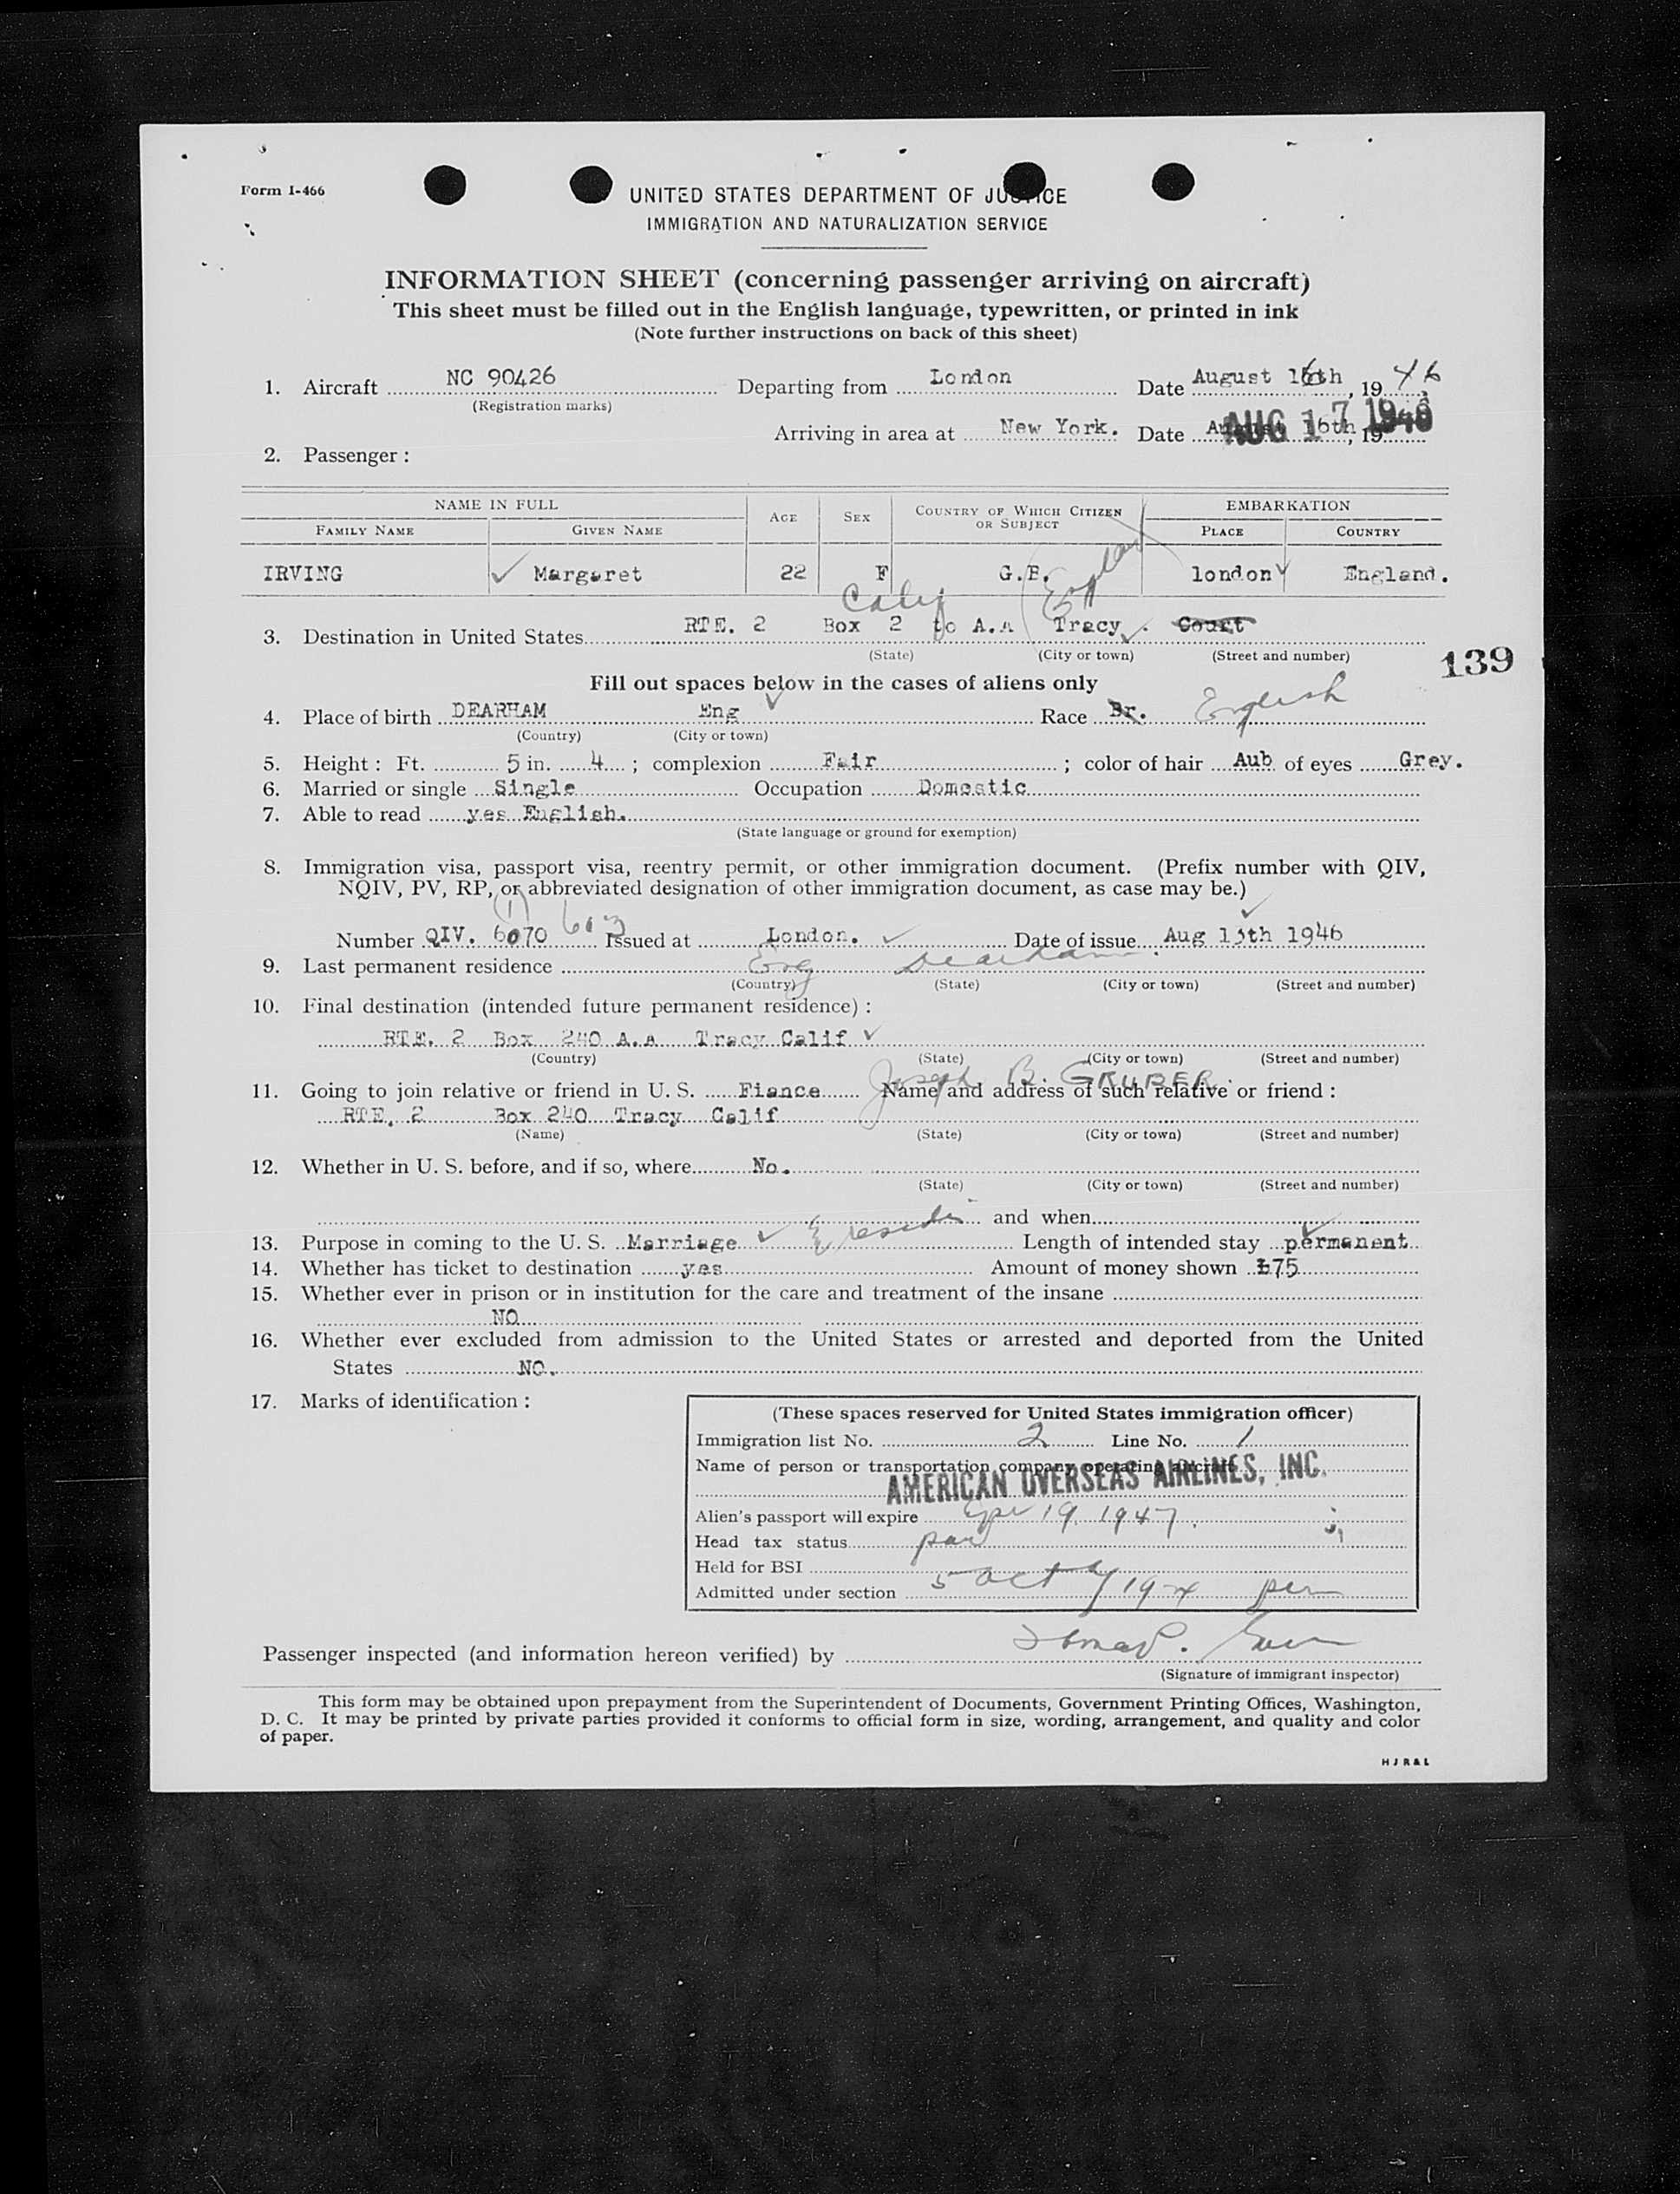 Form I-466
UNITED STATES DEPARTMENT OF JUSTICE
IMMIGRATION AND NATURALIZATION SERVICE
INFORMATION SHEET (concerning passenger arriving on aircraft)
This sheet must be filled out in the English language, typewritten, or printed in ink
(Note further instructions on back of this sheet)
1. Aircraft NC 90426 Departing from London Date August 16th, 1946
(Registration marks)
Arriving in area at New York. Date August 16th, 19 AUG 17 1946
2. Passenger :
NAME IN FULL AGE SEX COUNTRY OF WHICH CITIZEN OR SUBJECT EMBARKATION
FAMILY NAME GIVEN NAME PLACE COUNTRY
IRVING Margaret 22 F G.B. England london England.
Calif
3. Destination in United States RTE. 2 Box 2 to A.A Tracy. Court
(State) (City or town) (Street and number)
139
Fill out spaces below in the cases of aliens only
4. Place of birth DEARHAM Eng Race Br. English
(Country) (City or town)
5. Height : Ft. 5 in. 4 ; complexion Fair ; color of hair Aub of eyes Grey.
6. Married or single Single Occupation Domestic
7. Able to read yes English.
(State language or ground for exemption)
8. Immigration visa, passport visa, reentry permit, or other immigration document. (Prefix number with QIV,
NQIV, PV, RP, or abbreviated designation of other immigration document, as case may be.)
Number QIV. 6070 (1) 603 Issued at London. Date of issue Aug 13th 1946
9. Last permanent residence Eng Dearham
(Country) (State) (City or town) (Street and number)
10. Final destination (intended future permanent residence) :
RTE. 2 Box 240 A.A Tracy Calif
(Country) (State) (City or town) (Street and number)
Joseph B. GRUBER
11. Going to join relative or friend in U. S. Fiance Name and address of such relative or friend :
RTE. 2 Box 240 Tracy Calif
(Name) (State) (City or town) (Street and number)
12. Whether in U. S. before, and if so, where No.
(State) (City or town) (Street and number)
and when
13. Purpose in coming to the U. S. Marriage & reside Length of intended stay permanent
14. Whether has ticket to destination yes Amount of money shown £75
15. Whether ever in prison or in institution for the care and treatment of the insane
NO
16. Whether ever excluded from admission to the United States or arrested and deported from the United
States NO.
17. Marks of identification :
(These spaces reserved for United States immigration officer)
Immigration list No. 2 Line No. 1
Name of person or transportation company operating aircraft
AMERICAN OVERSEAS AIRLINES, INC.
Alien's passport will expire Apr 19 1947
Head tax status
Held for BSI
Admitted under section 5 act of 1924
Passenger inspected (and information hereon verified) by
(Signature of immigrant inspector)
This form may be obtained upon prepayment from the Superintendent of Documents, Government Printing Offices, Washington,
D. C. It may be printed by private parties provided it conforms to official form in size, wording, arrangement, and quality and color
of paper.
H J R & L